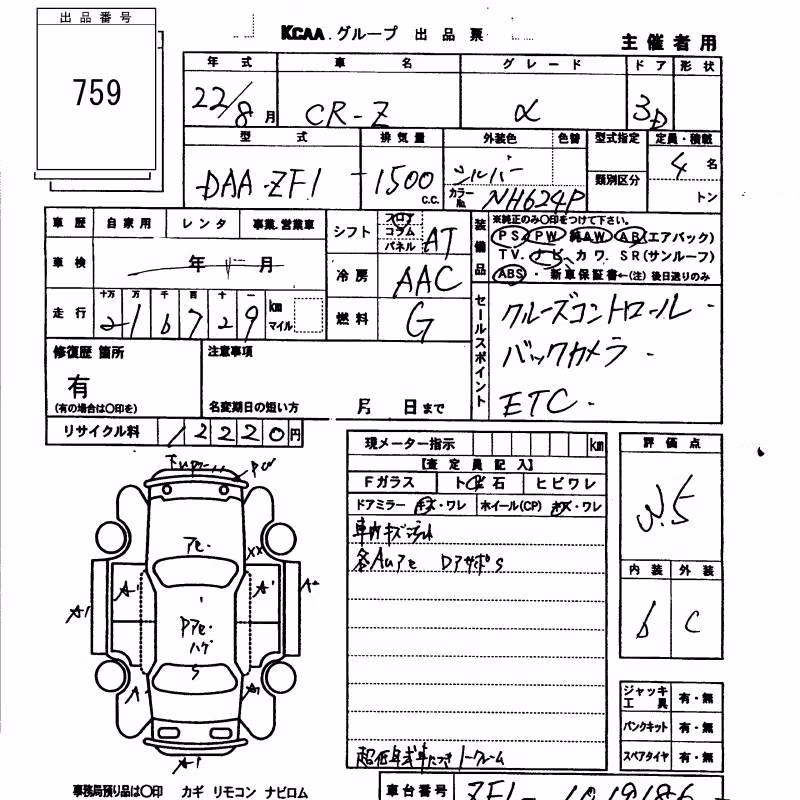 出品番号
759
KCAA.グループ 出品票
主催者用
年式 車名 グレード ドア 形状
22/8月 CR-Z α 3D
型式 排気量 外装色 色替 型式指定 定員・積載
DAA-ZF1 1500 c.c. シルバー カラーNo. NH624P 類別区分 4名 トン
車歴 自家用 レンタ 事業.営業車 シフト フロア コラム パネル AT
装備品 ※純正のみ〇印をつけて下さい。
PS PW 純AW AB(エアバック)
TV. ナビ カワ. SR(サンルーフ)
ABS・新車保証書←(注)後日送りのみ
車検 年 月 冷房 AAC
走行 十万 万 千 百 十 一 km マイル 燃料 G
2 1 6 7 2 9
セールスポイント
クルーズコントロール
バックカメラ
ETC
修復歴 箇所 注意事項
有
(有の場合は〇印を) 名変期日の短い方 月 日まで
リサイクル料 12220円
現メーター指示 km
【査定員記入】
Fガラス ト 石 ヒビワレ
ドアミラー キズ・ワレ ホイール(CP) キズ・ワレ
車内キズ
各AUアE DアサポS
評価点
3.5
内装 外装
b C
アE. XX
A1 A1 A1 A1 A2
PアE.
ハゲ
S
A1
A1
ジャッキ 工具 有・無
パンクキット 有・無
スペアタイヤ 有・無
超低年式車につきノークレーム
事務局預り品は〇印 カギ リモコン ナビロム
車台番号 ZF1-1019186